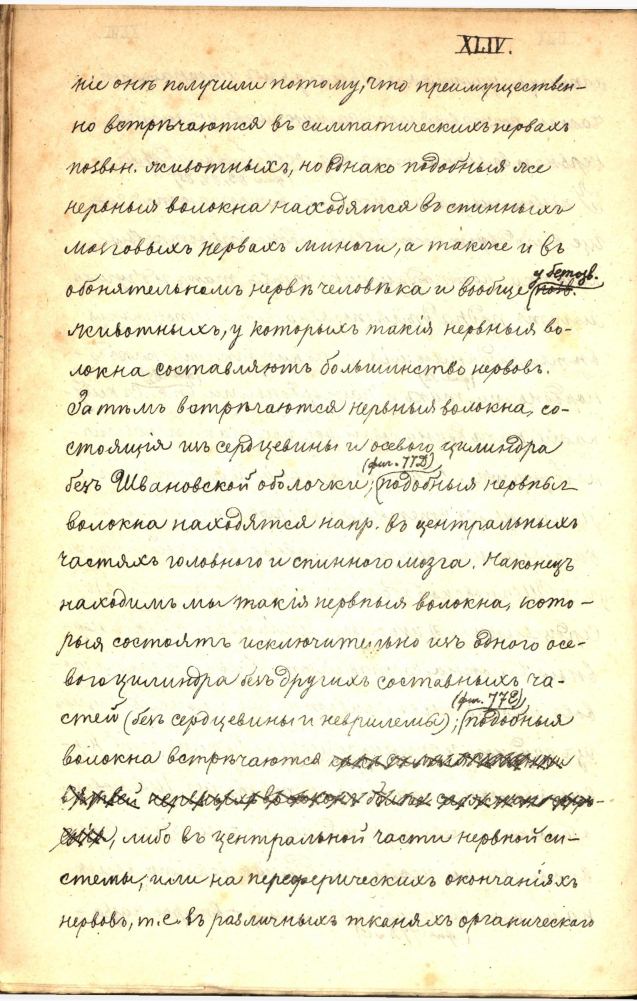 XLIV.
ніе онѣ получили потому, что преимуществен-
но встрѣчаются въ симпатическихъ нервахъ
позвон. животныхъ, но однако подобныя же
нервныя волокна находятся въ спинныхъ
мозговыхъ нервахъ миноги, а также и въ
у безпозв.
обонятельномъ нервѣ человѣка и вообще
животныхъ, у которыхъ такія нервныя во-
локна составляютъ большинство нервовъ.
Затѣмъ встрѣчаются нервныя волокна, со-
стоящія изъ сердцевины и осевого цилиндра
(фиг. 77D)
безъ Швановской оболочки; подобныя нервныя
волокна находятся напр. въ центральныхъ
частяхъ головного и спинного мозга. Наконецъ
находимъ мы такія нервныя волокна, кото-
рыя состоятъ исключительно изъ одного осе-
вого цилиндра безъ другихъ составныхъ ча-
(фиг. 77E)
стей (безъ сердцевины и неврилемы); подобныя
волокна встрѣчаются
, либо въ центральной части нервной си-
стемы, или на переферическихъ окончаніяхъ
нервовъ, т.е. въ различныхъ тканяхъ органическаго